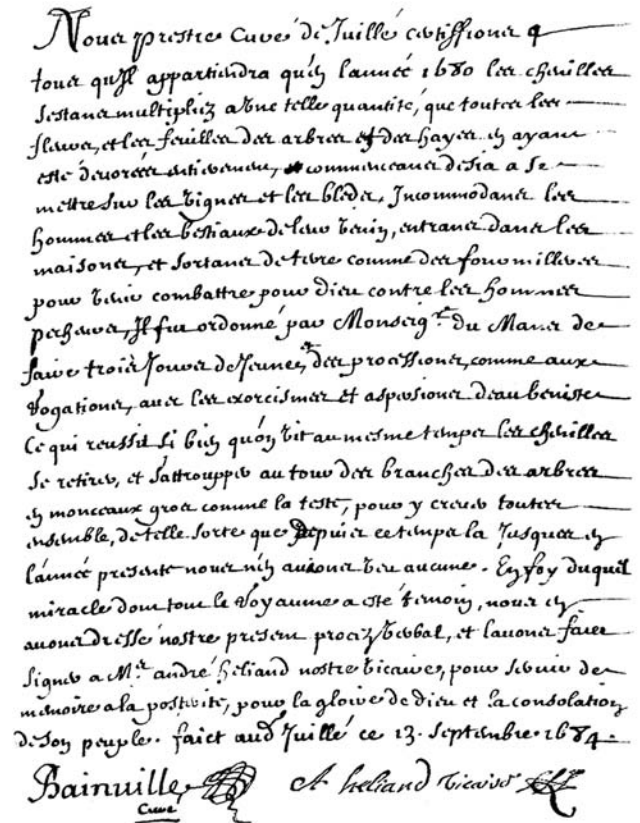 Nous prestre Curé de Juillé certiffions a
tous qu'Il appartiendra qu'en l'année 1680 les chenilles
s'estans multipliez a une telle quantité, que toutes les
fleurs, et les feuilles des arbres et des hayes en ayant
esté devorées entierement, commenceans desia a se
mettre sur les vignes et les bleds, Incommodans les
hommes et les bestiaux de leur venin, entrans dans les
maisons, et sortans de terre comme des fourmillieres
pour venir combattre pour dieu contre les hommes
pecheurs, Il fut ordonné par Monseigr. du Mans de
faire trois Jours de Jeunes, et des processions, comme aux
Rogations, avec les exorcismes et aspersions d'eau beniste
Ce qui reussit si bien qu'on vit au mesme temps les chenilles
se retirer, et s'attroupper au tour des branches des arbres
en monceaux gros comme la teste, pour y crever toutes
ensemble, de telle sorte que Depuis ce temps la Jusques en
l'année presente nous n'en avions veu aucune. En foy duquel
miracle dont tout le Royaume a esté temoin, nous en
avons dressé nostre present procez verbal, et l'avons faict
signer a Mr. andré heliand nostre vicaire, pour servir de
memoire a la posterité, pour la gloire de dieu et la consolation
de son peuple. faict aud. Juillé ce 13. septembre 1684.
Bainville A heliand vicaire
Curé